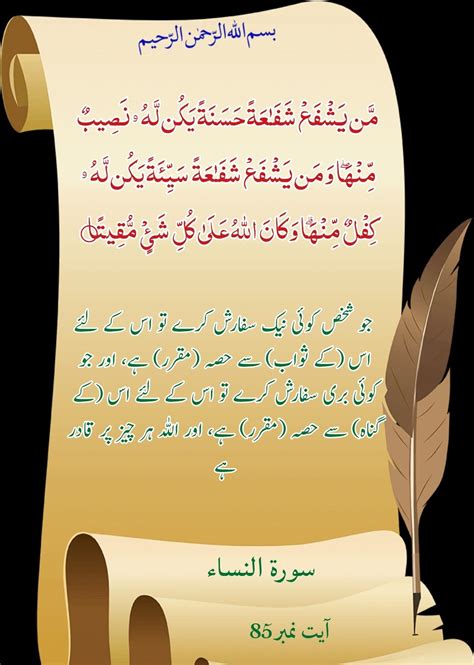 بسم اللہ الرّحمٰن الرّحیم
مَّن يَشْفَعْ شَفَـٰعَةً حَسَنَةً يَكُن لَّهُۥ نَصِيبٌ
مِّنْهَاۖ وَمَن يَشْفَعْ شَفَـٰعَةً سَيِّئَةً يَكُن لَّهُۥ
كِفْلٌ مِّنْهَاۗ وَكَانَ اللهُ عَلَىٰ كُلِّ شَىْءٍ مُّقِيتًا
جو شخص کوئی نیک سفارش کرے تو اس کے لئے
اس (کے ثواب) سے حصہ (مقرر) ہے، اور جو
کوئی بری سفارش کرے تو اس کے لئے اس (کے
گناہ) سے حصہ (مقرر) ہے، اور اللہ ہر چیز پر قادر
ہے
سورة النساء
آیت نمبر 85